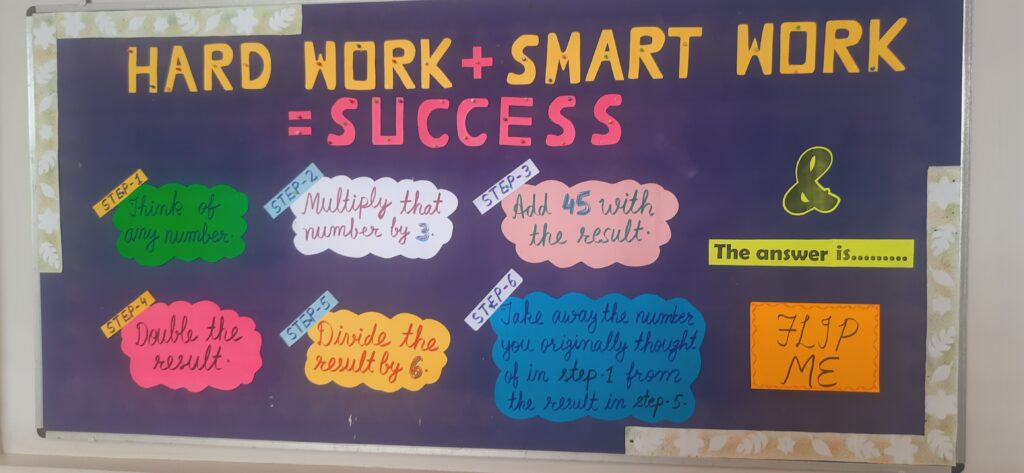 HARD WORK + SMART WORK
= SUCCESS
STEP-1
Think of
any number.
STEP-2
Multiply that
number by 3.
STEP-3
Add 45 with
the result.
STEP-4
Double the
result.
STEP-5
Divide the
result by 6.
STEP-6
Take away the number
you originally thought
of in step-1 from
the result in step-5.
&
The answer is.........
FLIP
ME